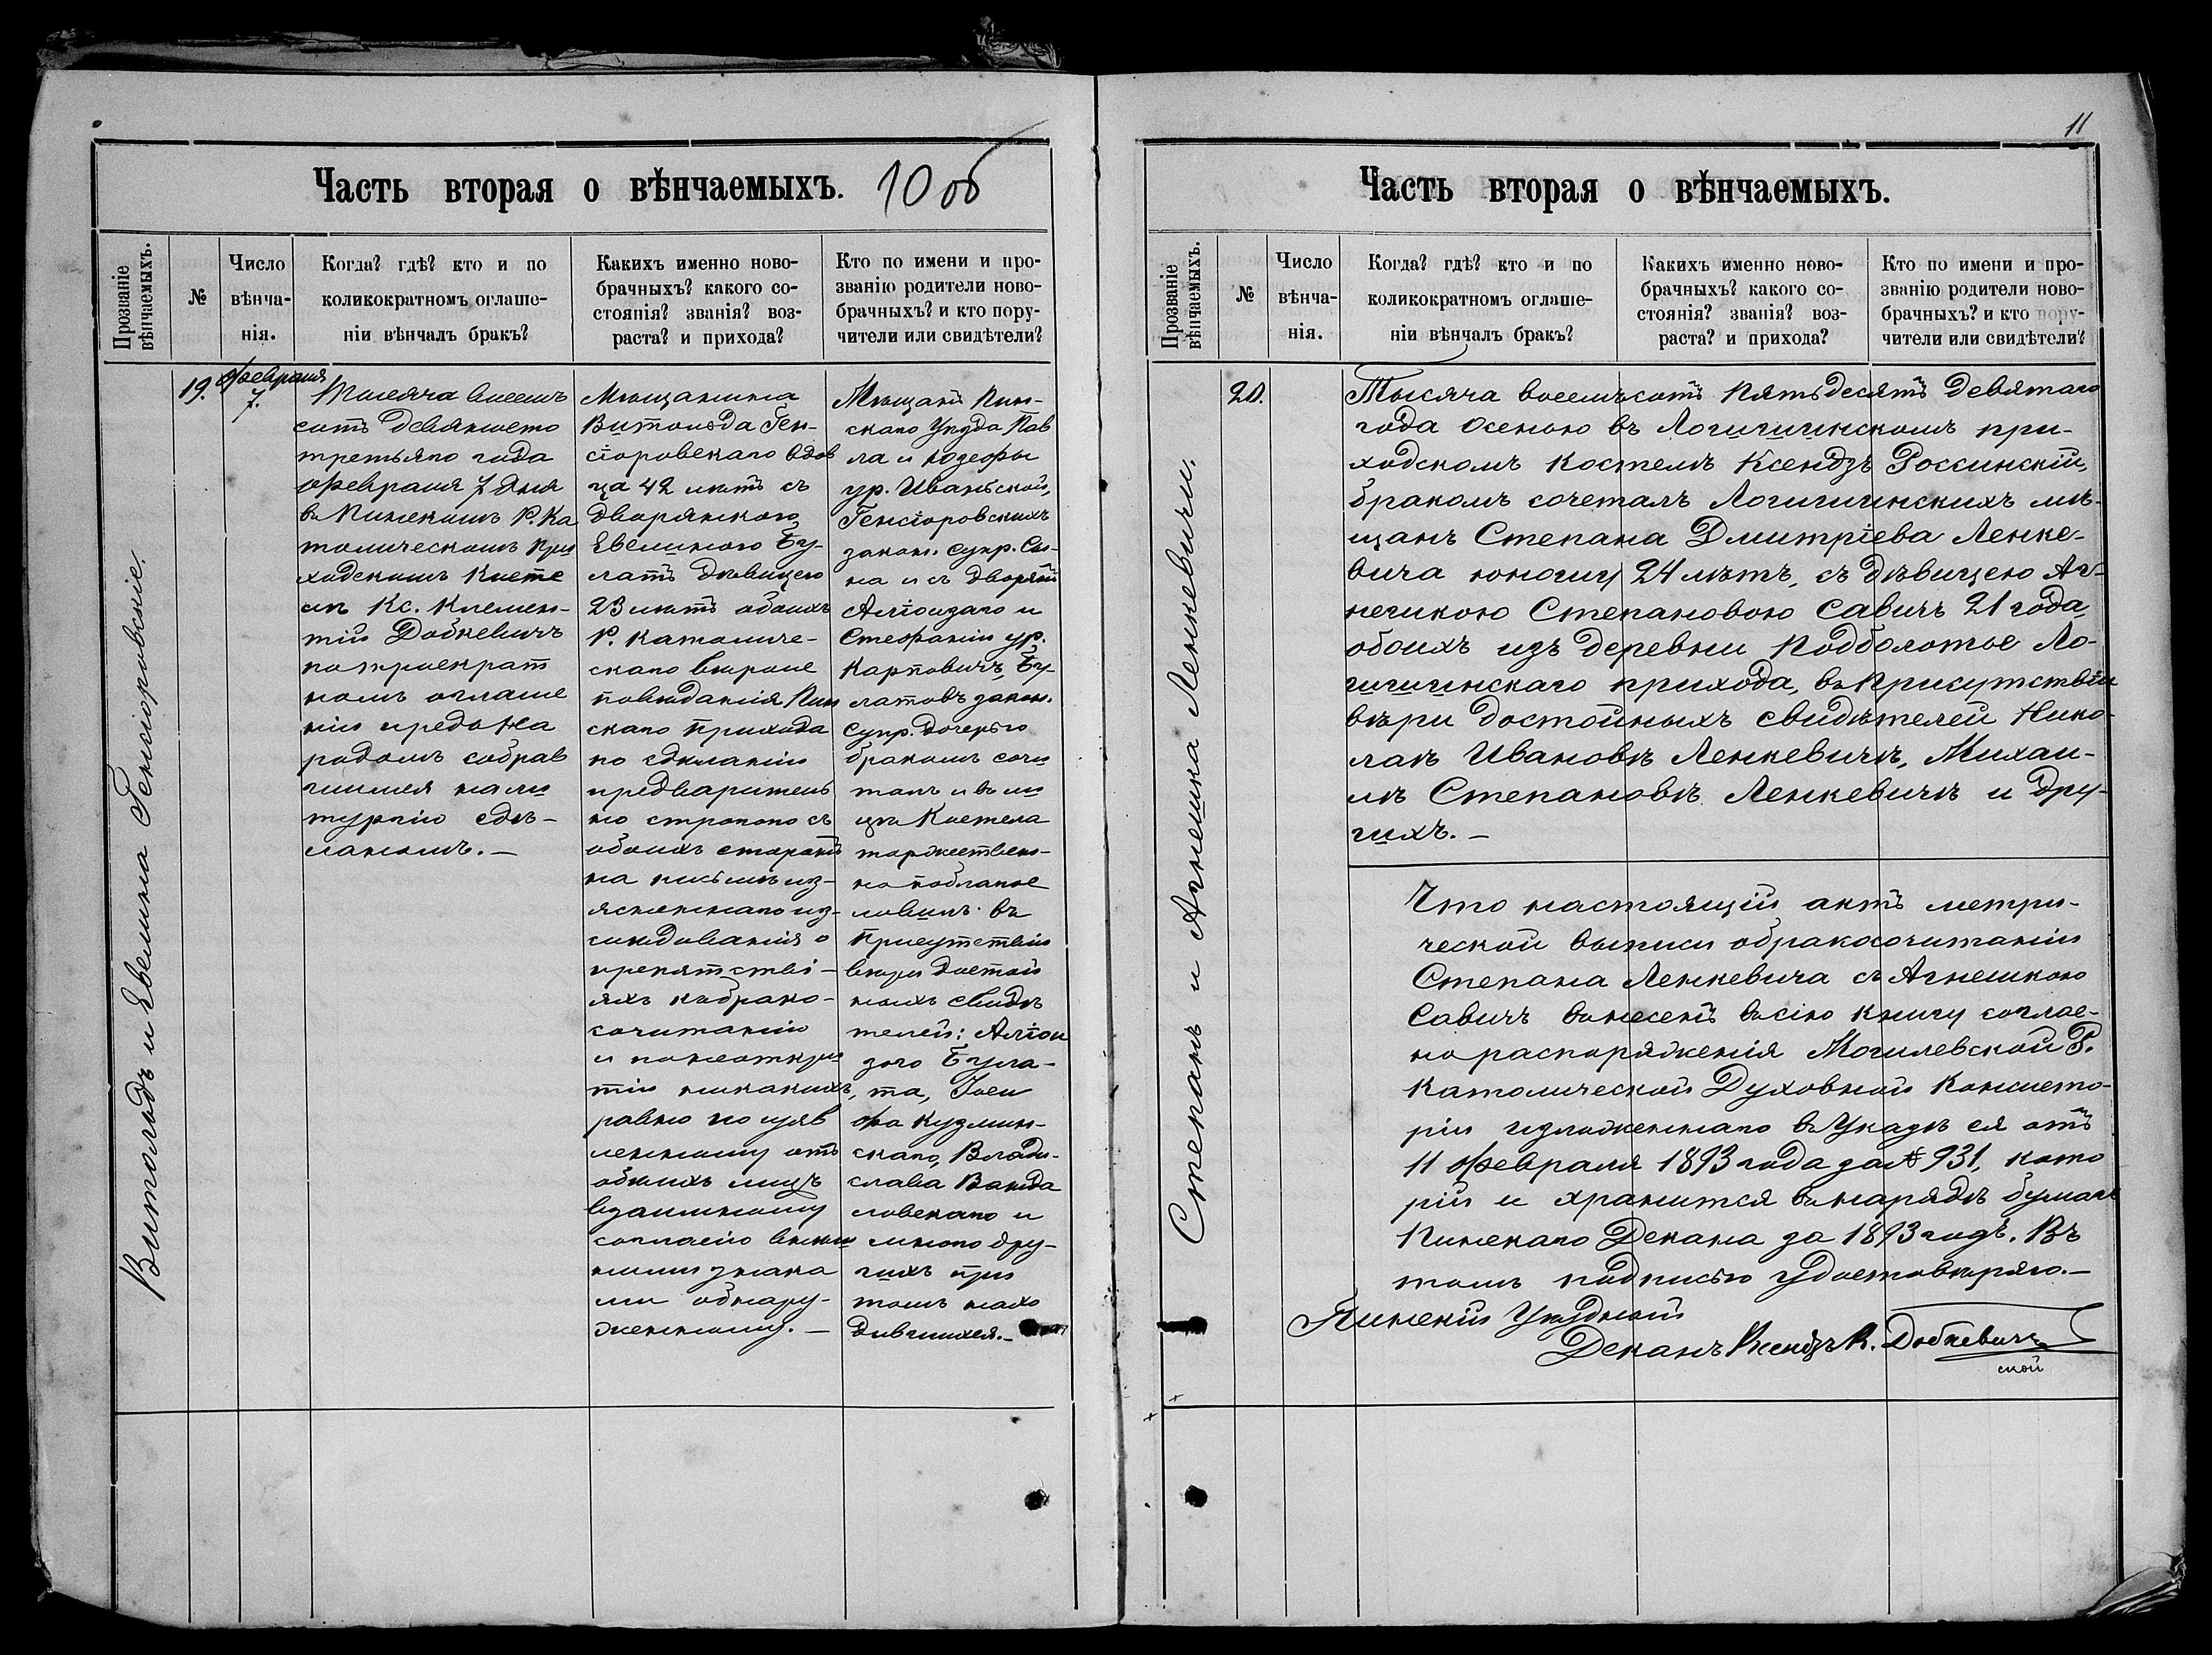 Часть вторая о вѣнчаемыхъ. 10 об
Прозваніе вѣнчаемыхъ.
№
Число вѣнча-нія.
Когда? гдѣ? кто и по коликократномъ оглаше-ніи вѣнчалъ бракъ?
Какихъ именно ново-брачныхъ? какого со-стоянія? званія? воз-раста? и прихода?
Кто по имени и про-званію родители ново-брачныхъ? и кто пору-чители или свидѣтели?
Витольдъ и Эвелина Генсіоровскіе.
19.
Февраля
7.
Тысяча восемь
сотъ девяносто
третьяго года
Февраля 7 дня
въ Пинскомъ Р. Ка
толическомъ При
ходскомъ Косте
лѣ Кс. Климен-
тій Добкевичъ
по троекрат
номъ оглаше
ніи предъ На
родомъ собрав
шимся на ли
тургію сдѣ-
ланномъ. —
Мѣщанина
Витольда Ген-
сіоровскаго вдов
ца 42 лѣтъ съ
Дворянкою
Эвелиною Бу-
латъ дѣвицею
23 лѣтъ обоихъ
Р. Католиче-
скаго вѣроис
повѣданія Пин
скаго Прихода
по сдѣланіи
предваритель
но строгаго съ
обоихъ сторонъ
на письмѣ из-
ясненнаго из-
слѣдованія о
препятстві-
яхъ къ брако-
сочитанію
и по неоткры
тіи никакихъ,
равно по изъяв
ленному отъ
обоихъ лицъ
взаимному
согласію внѣш
ними знака
ми обнару-
женному. —
Мѣщанъ Пин-
скаго Уѣзда Пав
ла и Юзефы
ур. Иваньской,
Генсіоровскихъ
закон. супр. Сы-
на и съ дворянъ
Алоизаго и
Стефаніи ур.
Карповичъ, Бу-
латовъ закон.
Супр. Дочерью
бракомъ сочи
талъ и въ ли
цѣ Костела
торжествен-
но поблагос
ловилъ въ
присутствіи
вѣры достой
ныхъ свидѣ
телей: Алои
зого Була-
та, Іоси
фа Кузмин-
скаго, Влади-
слава Ванда
ловскаго и
много дру-
гихъ при
томъ нахо
дившихся. —
11
Часть вторая о вѣнчаемыхъ.
Прозваніе вѣнчаемыхъ.
№
Число вѣнча-нія.
Когда? гдѣ? кто и по коликократномъ оглаше-ніи вѣнчалъ бракъ?
Какихъ именно ново-брачныхъ? какого со-стоянія? званія? воз-раста? и прихода?
Кто по имени и про-званію родители ново-брачныхъ? и кто пору-чители или свидѣтели?
Степанъ и Агнешка Ленкевичи.
20.
Тысяча восемьсотъ Пятьдесятъ Девятаго
года Осенью въ Логишинскомъ при-
ходскомъ Костелѣ Ксендзъ Россинскій,
бракомъ сочеталъ Логишинскихъ мѣ-
щанъ Степана Дмитріева Ленке-
вича юношу 24 лѣтъ, съ дѣвицею Аг-
нешкою Степановою Савичъ 21 года,
обоихъ изъ деревни Подболотье Ло-
гишинскаго прихода, въ присутствіи
вѣри достойныхъ свидѣтелей Нико-
лаѣ Ивановѣ Ленкевичѣ, Михаи-
лѣ Степановѣ Ленкевичѣ и дру-
гихъ. —
Что настоящій актъ метри-
ческой выписи о бракосочитаніи
Степана Ленкевича съ Агнешкою
Савичъ внесенъ въ сію книгу соглас-
но распоряженія Могилевской Р.
Католической Духовной Консисто-
ріи изложеннаго въ Указѣ ея отъ
11 Февраля 1893 года за № 931, кото
рій и хранится въ нарядѣ бумагъ
Пинскаго Декана за 1893 годъ. Въ
томъ подписью удостовѣряю. —
Пинскій Уѣздной
Деканъ Ксендзъ К. Добкевичъ
ской